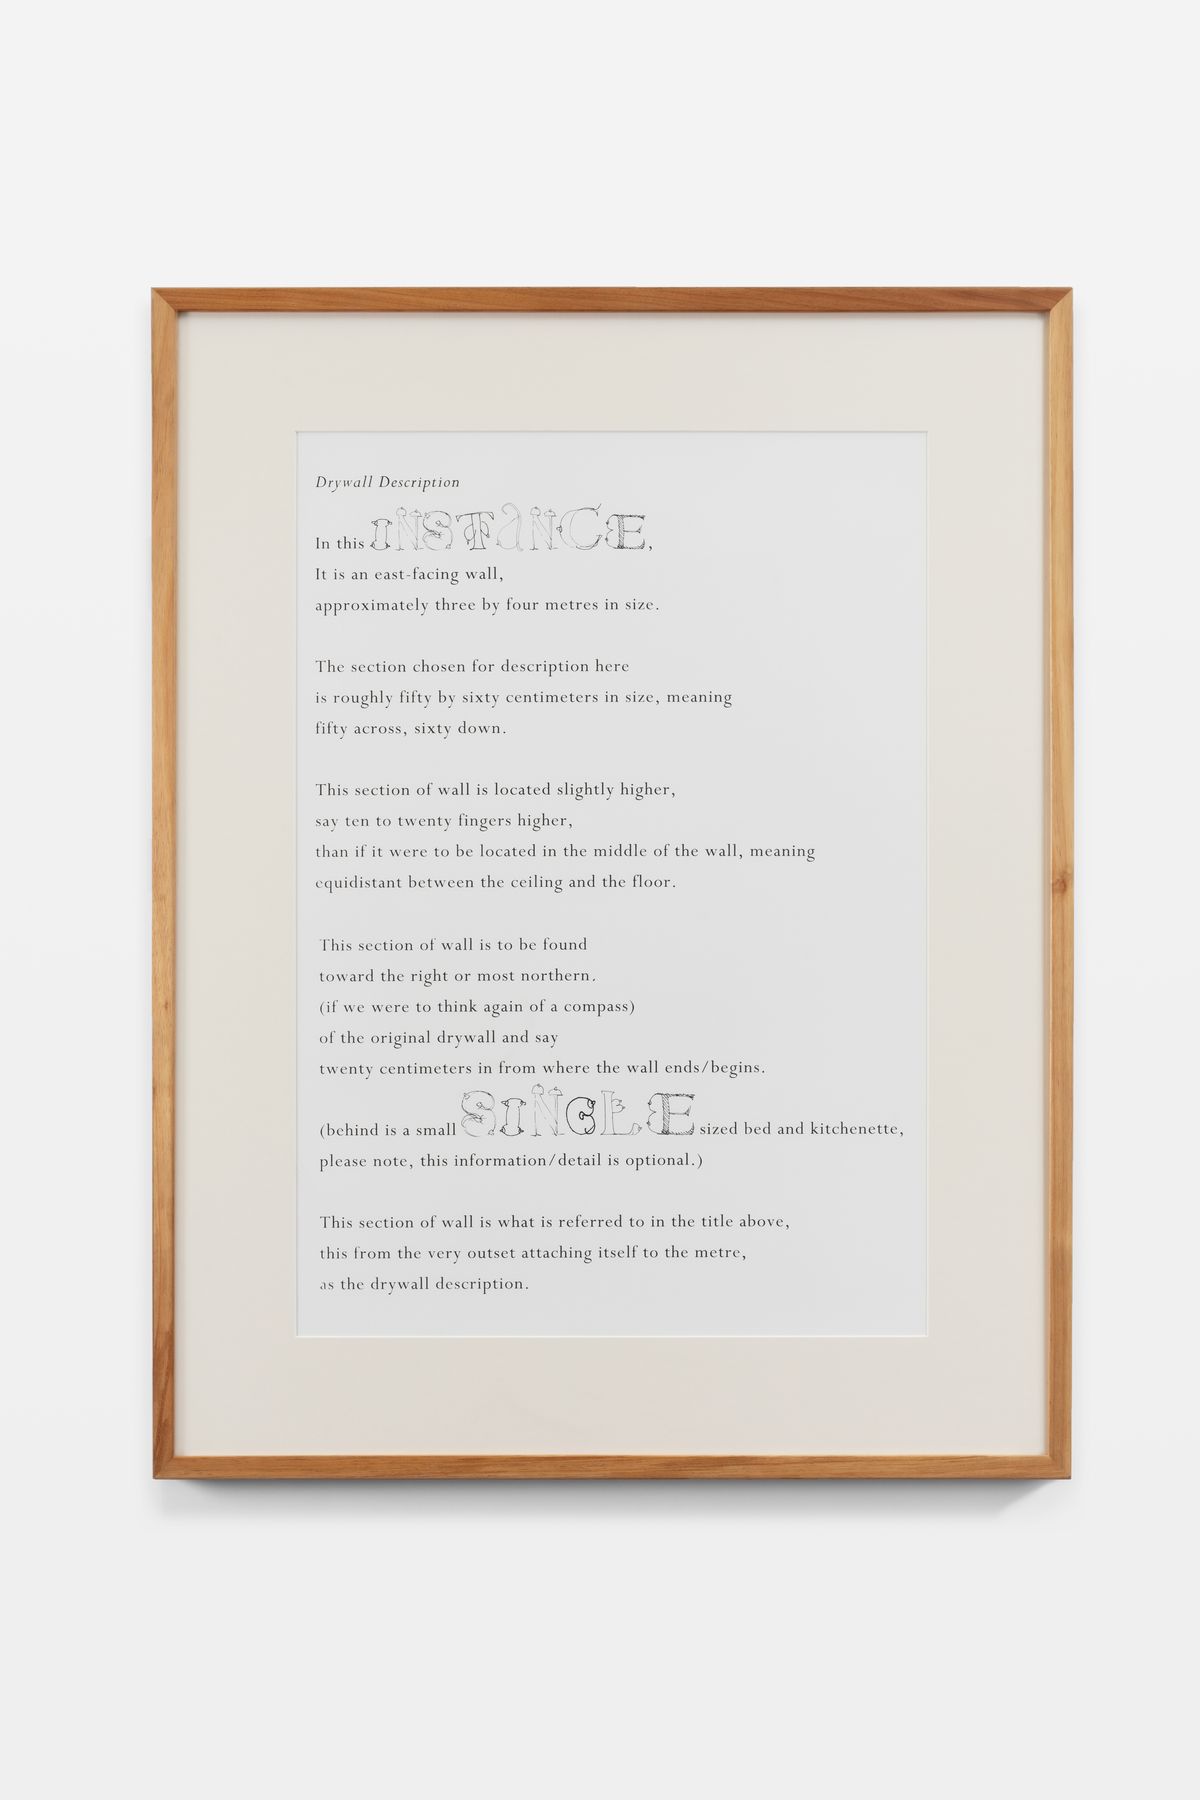 Drywall Description
In this INSTANCE,
It is an east-facing wall,
approximately three by four metres in size.
The section chosen for description here
is roughly fifty by sixty centimeters in size, meaning
fifty across, sixty down.
This section of wall is located slightly higher,
say ten to twenty fingers higher,
than if it were to be located in the middle of the wall, meaning
equidistant between the ceiling and the floor.
This section of wall is to be found
toward the right or most northern.
(if we were to think again of a compass)
of the original drywall and say
twenty centimeters in from where the wall ends/begins.
(behind is a small SINGLE sized bed and kitchenette,
please note, this information/detail is optional.)
This section of wall is what is referred to in the title above,
this from the very outset attaching itself to the metre,
as the drywall description.